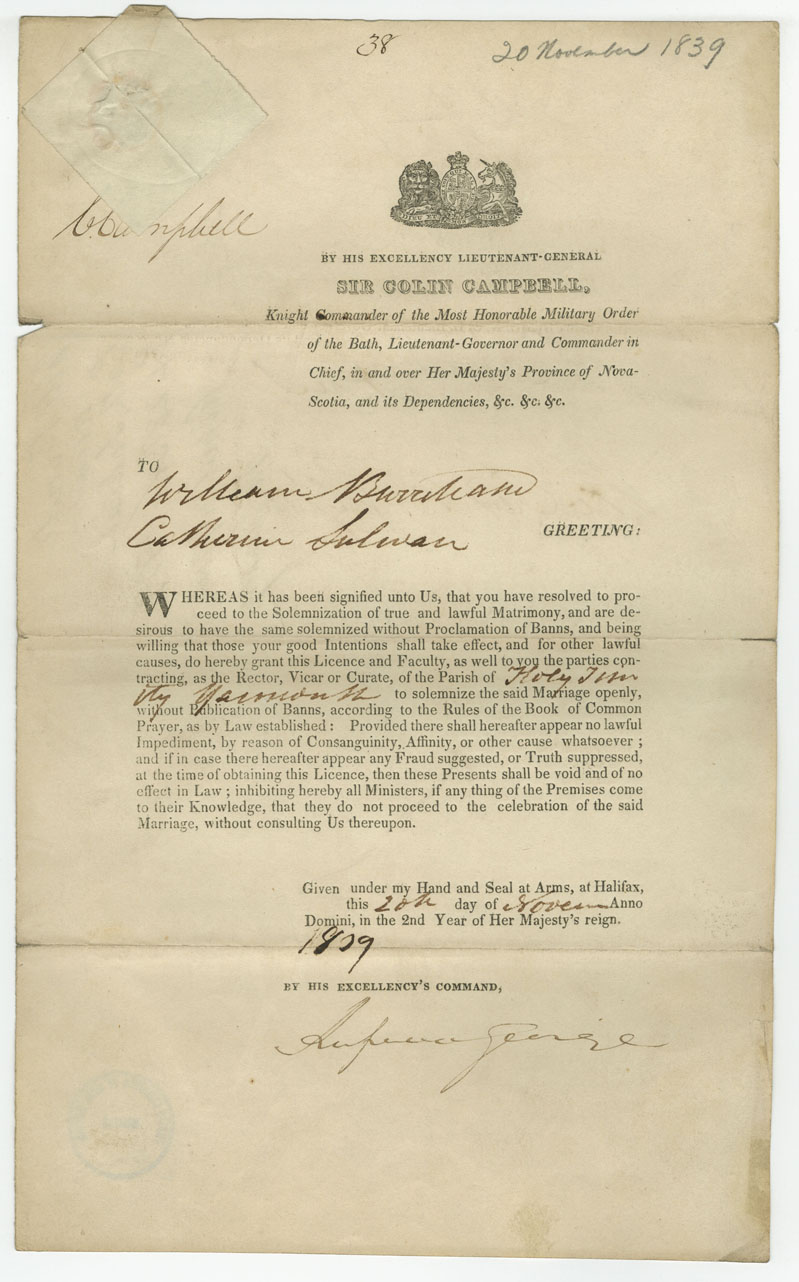 38
20 November 1839
C Campbell
BY HIS EXCELLENCY LIEUTENANT-GENERAL
SIR COLIN CAMPBELL,
Knight Commander of the Most Honorable Military Order
of the Bath, Lieutenant-Governor and Commander in
Chief, in and over Her Majesty's Province of Nova-
Scotia, and its Dependencies, &c. &c. &c.
TO
William
Catherine
GREETING:
WHEREAS it has been signified unto Us, that you have resolved to pro-
ceed to the Solemnization of true and lawful Matrimony, and are de-
sirous to have the same solemnized without Proclamation of Banns, and being
willing that those your good Intentions shall take effect, and for other lawful
causes, do hereby grant this Licence and Faculty, as well to you the parties con-
tracting, as the Rector, Vicar or Curate, of the Parish of Holy Trin
ity Yarmouth to solemnize the said Marriage openly,
without Publication of Banns, according to the Rules of the Book of Common
Prayer, as by Law established : Provided there shall hereafter appear no lawful
Impediment, by reason of Consanguinity, Affinity, or other cause whatsoever ;
and if in case there hereafter appear any Fraud suggested, or Truth suppressed,
at the time of obtaining this Licence, then these Presents shall be void and of no
effect in Law ; inhibiting hereby all Ministers, if any thing of the Premises come
to their Knowledge, that they do not proceed to the celebration of the said
Marriage, without consulting Us thereupon.
Given under my Hand and Seal at Arms, at Halifax,
this 20th day of Novem Anno
Domini, in the 2nd Year of Her Majesty's reign.
1839
BY HIS EXCELLENCY'S COMMAND,
Rupert George